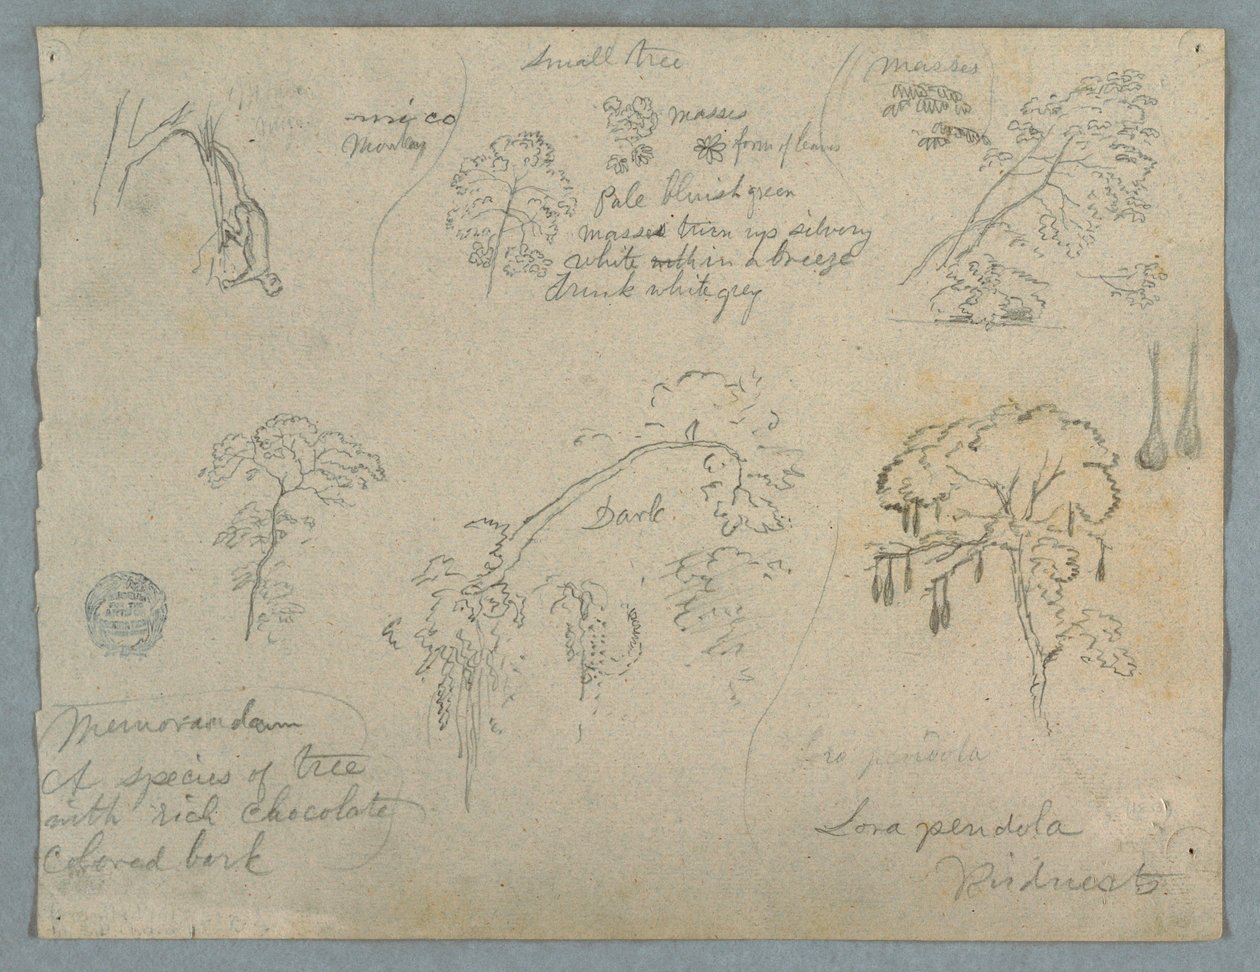 Small tree
masses
mico
Monkey
masses
form of leaves
Pale bluish green
masses turn up silvery
white with in a breeze
Trunk white grey
Dark
Memorandum
A species of tree
with rich chocolate
colored bark
pendola
Lora pendola
Birdnests